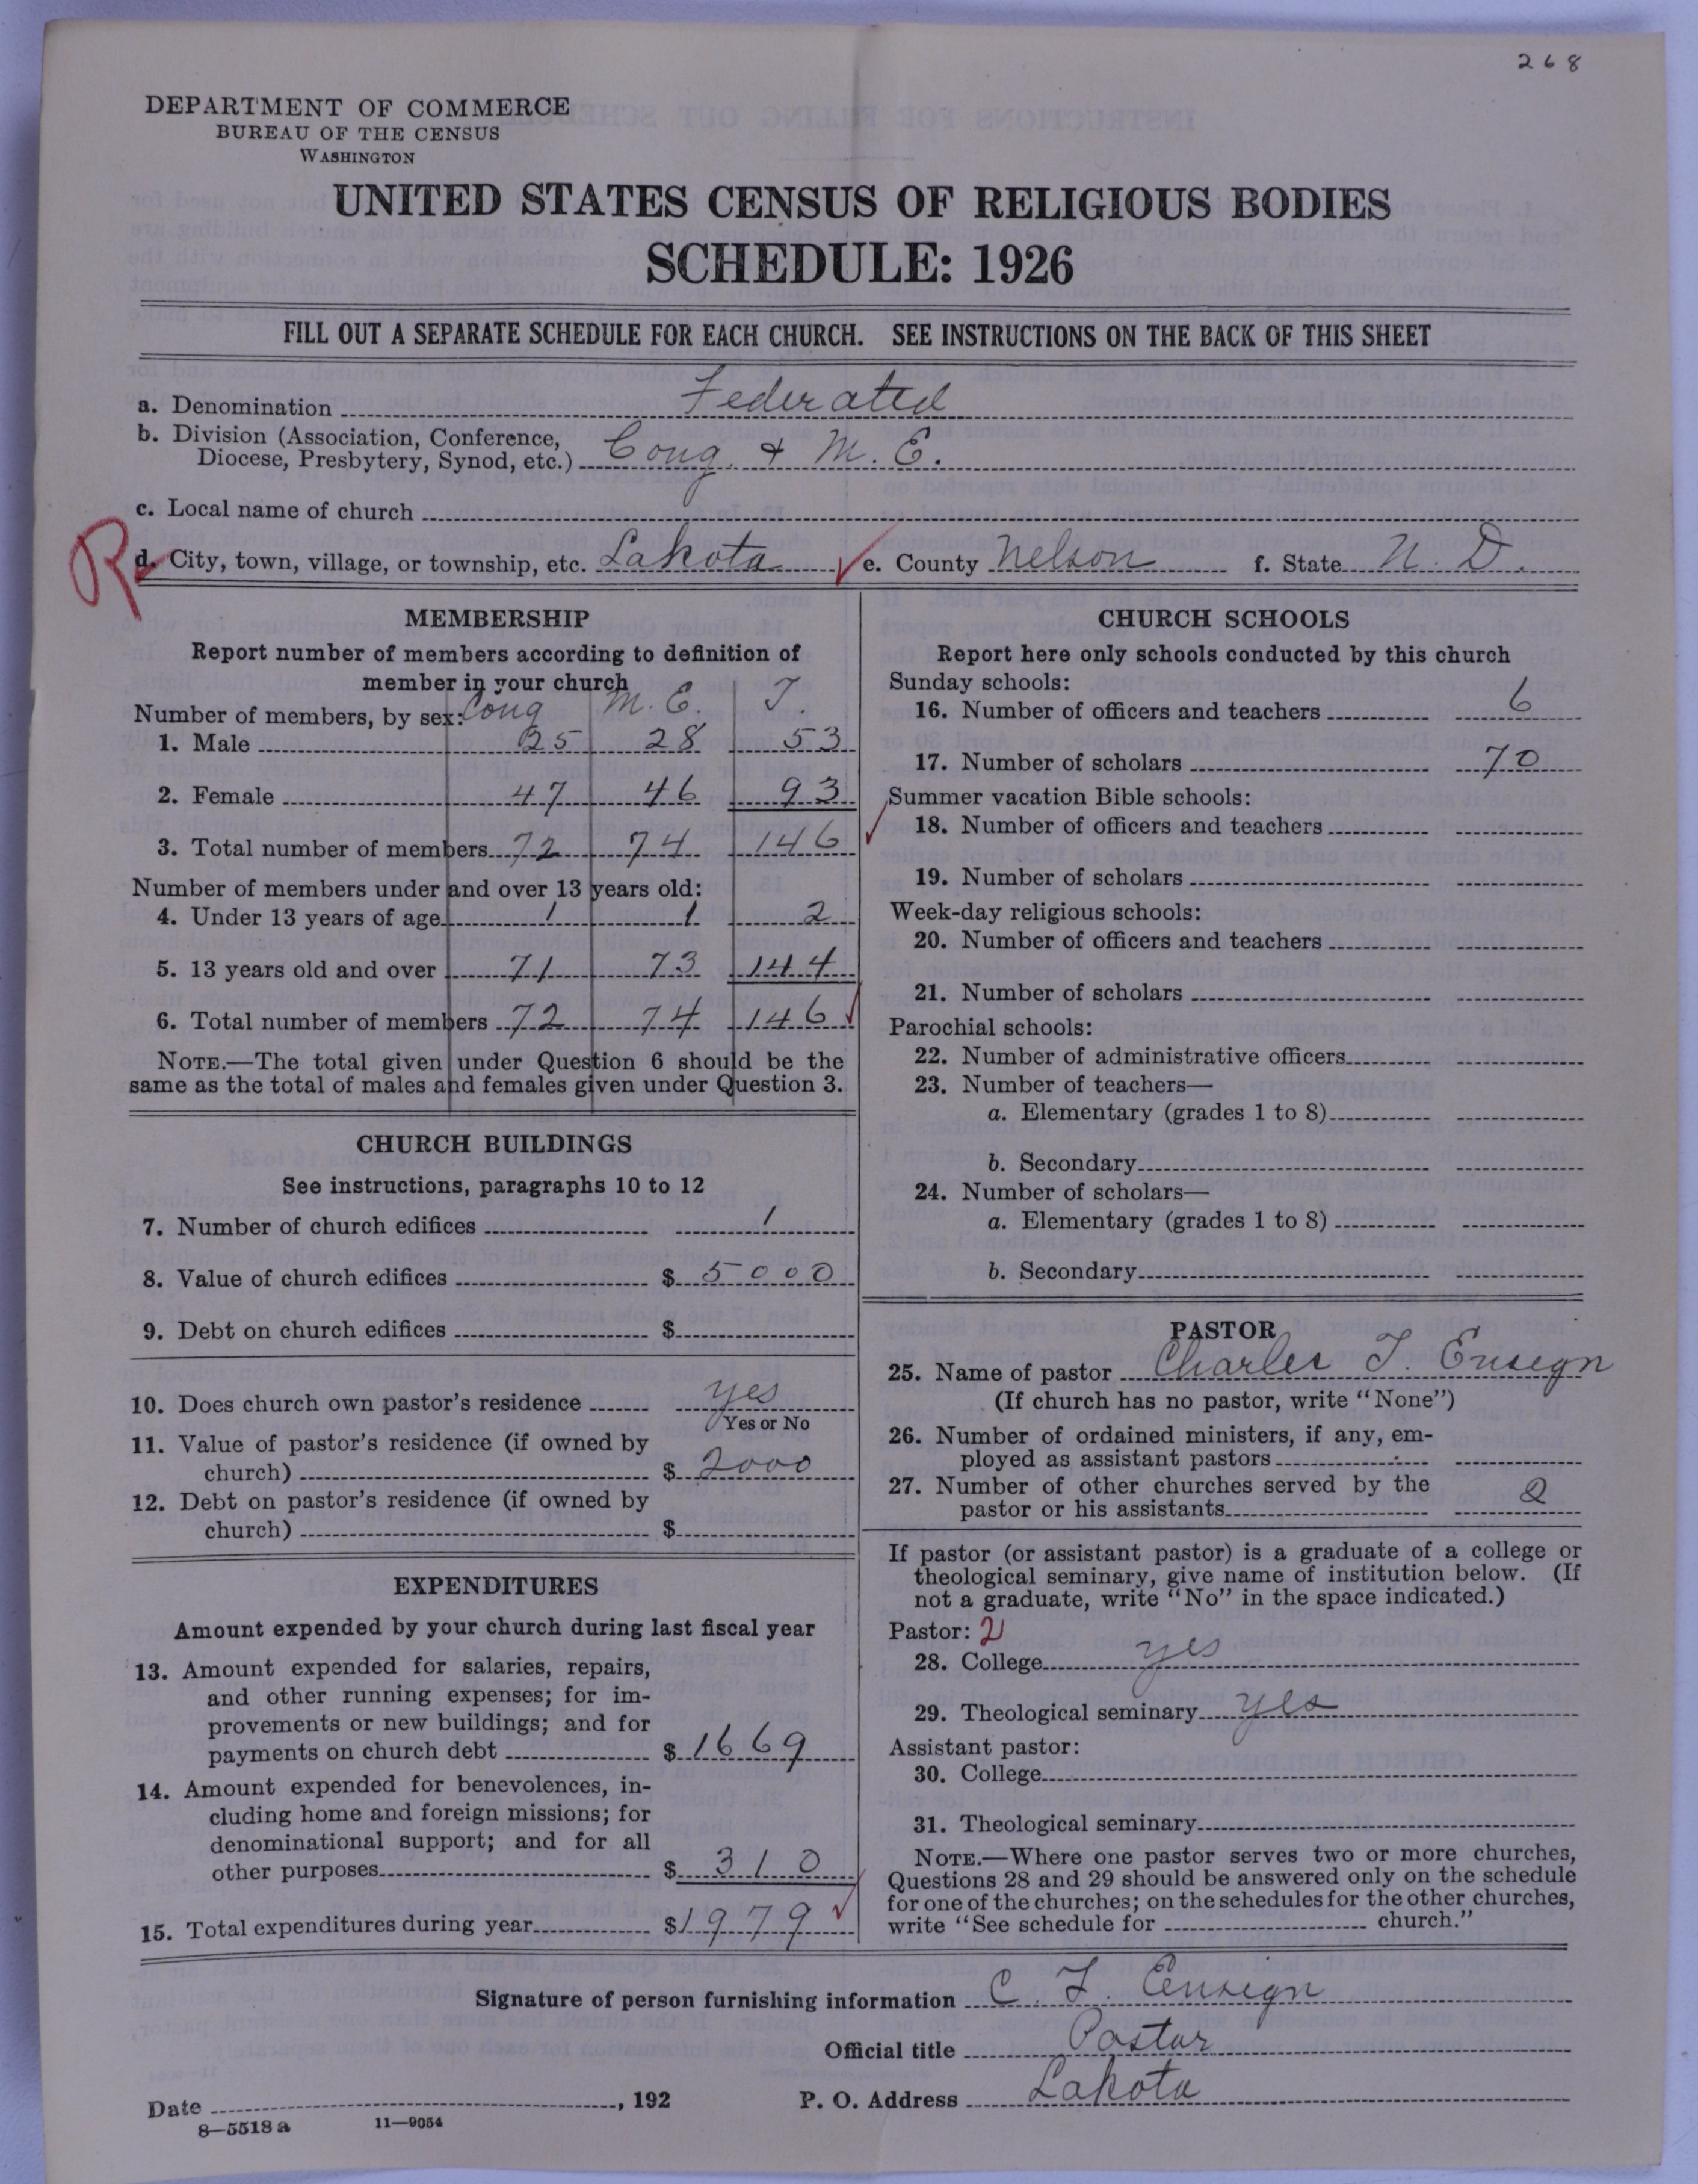 268
DEPARTMENT OF COMMERCE
BUREAU OF THE CENSUS
WASHINGTON
UNITED STATES CENSUS OF RELIGIOUS BODIES
SCHEDULE: 1926
FILL OUT A SEPARATE SCHEDULE FOR EACH CHURCH. SEE INSTRUCTIONS ON THE BACK OF THIS SHEET
a. Denomination Federated
b. Division (Association, Conference,
Diocese, Presbytery, Synod, etc.) Cong. & M. E.
c. Local name of church
R
d. City, town, village, or township, etc. Lakota e. County Nelson f. State N. D.
MEMBERSHIP
Report number of members according to definition of
member in your church
Number of members, by sex: Cong M. E. T.
1. Male 25 28 53
2. Female 47 46 93
3. Total number of members 72 74 146
Number of members under and over 13 years old:
4. Under 13 years of age 1 1 2
5. 13 years old and over 71 73 144
6. Total number of members 72 74 146
NOTE.—The total given under Question 6 should be the
same as the total of males and females given under Question 3.
CHURCH BUILDINGS
See instructions, paragraphs 10 to 12
7. Number of church edifices 1
8. Value of church edifices $ 5000
9. Debt on church edifices $
10. Does church own pastor's residence yes
Yes or No
11. Value of pastor's residence (if owned by
church) $ 2000
12. Debt on pastor's residence (if owned by
church) $
EXPENDITURES
Amount expended by your church during last fiscal year
13. Amount expended for salaries, repairs,
and other running expenses; for im-
provements or new buildings; and for
payments on church debt $ 1669
14. Amount expended for benevolences, in-
cluding home and foreign missions; for
denominational support; and for all
other purposes $ 310
15. Total expenditures during year $1979
CHURCH SCHOOLS
Report here only schools conducted by this church
Sunday schools:
16. Number of officers and teachers 6
17. Number of scholars 70
Summer vacation Bible schools:
18. Number of officers and teachers
19. Number of scholars
Week-day religious schools:
20. Number of officers and teachers
21. Number of scholars
Parochial schools:
22. Number of administrative officers
23. Number of teachers—
a. Elementary (grades 1 to 8)
b. Secondary
24. Number of scholars—
a. Elementary (grades 1 to 8)
b. Secondary
PASTOR
25. Name of pastor Charles T. Ensign
(If church has no pastor, write "None")
26. Number of ordained ministers, if any, em-
ployed as assistant pastors
27. Number of other churches served by the
pastor or his assistants 2
If pastor (or assistant pastor) is a graduate of a college or
theological seminary, give name of institution below. (If
not a graduate, write "No" in the space indicated.)
Pastor: 2
28. College yes
29. Theological seminary yes
Assistant pastor:
30. College
31. Theological seminary
NOTE.—Where one pastor serves two or more churches,
Questions 28 and 29 should be answered only on the schedule
for one of the churches; on the schedules for the other churches,
write "See schedule for church."
Signature of person furnishing information C. T. Ensign
Official title Pastor
Date , 192 P. O. Address Lakota
8—5518 a 11—9054